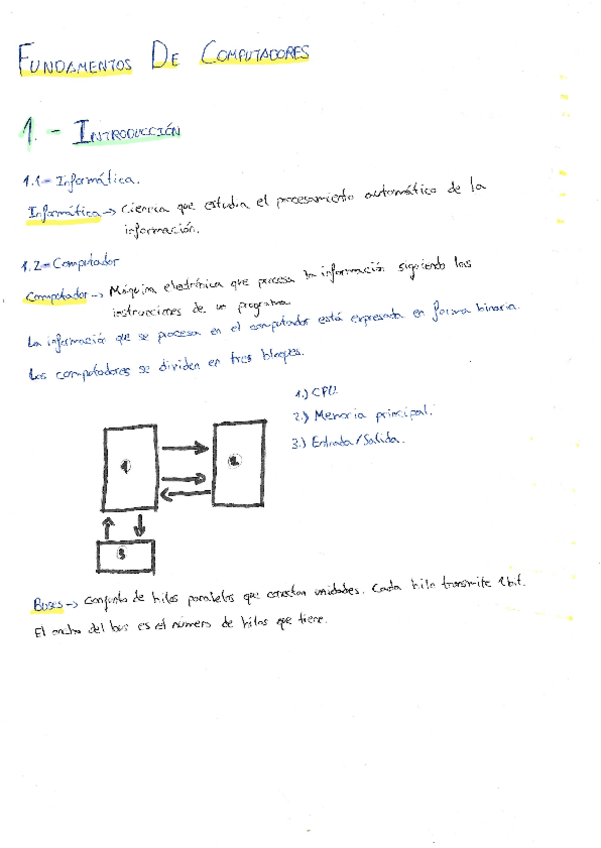 FUNDAMENTOS DE COMPUTADORES
1.- INTRODUCCIÓN
1.1- Informática.
Informática -> Ciencia que estudia el procesamiento automático de la
información.
1.2- Computador
Computador -> Máquina electrónica que procesa la información siguiendo las
instrucciones de un programa
La información que se procesa en el computador está expresada en forma binaria.
Los computadores se dividen en tres bloques.
1.) CPU.
2.) Memoria principal.
3.) Entrada/Salida.
1
2
3
BUSES -> Conjunto de hilos paralelos que conectan unidades. Cada hilo transmite 1 bit.
El ancho del bus es el número de hilos que tiene.